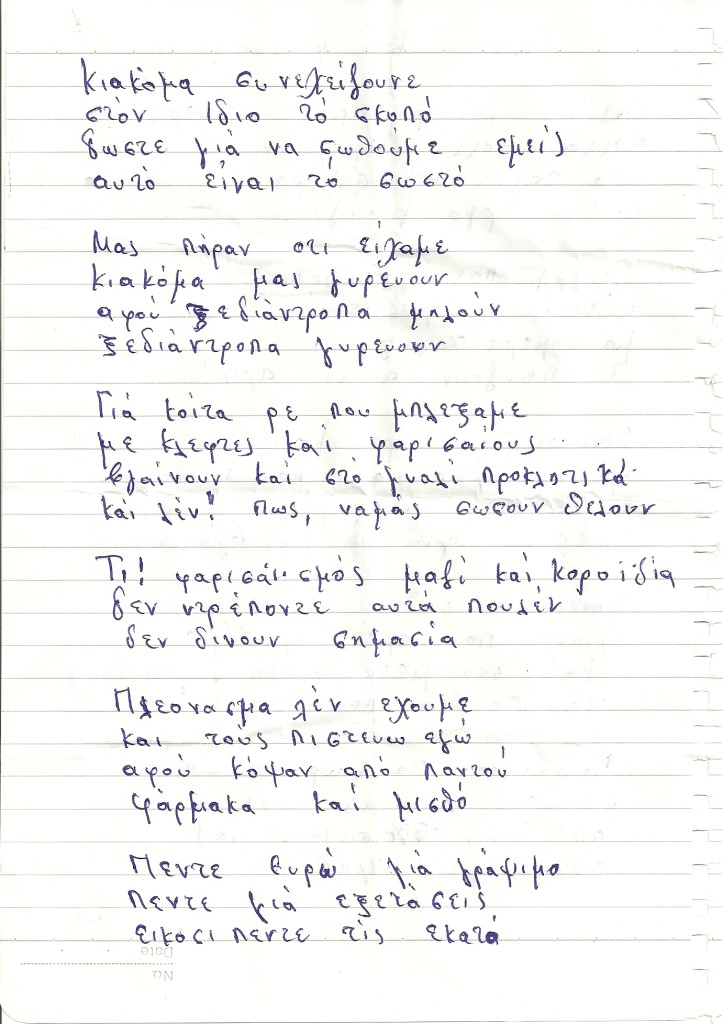 κιακόμα συνεχείζουνε
στόν ίδιο τό σκοπό
δωστε γιά να σωθούμε εμείς
αυτό είναι τό σωστό
Μας πήραν οτι είχαμε
κιακόμα μας γυρέυουν
αφού ξεδιάντροπα μιλούν
ξεδιάντροπα γυρευουν
Γιά κοίτα ρε που μπλεξαμε
με κλεφτες καί φαρισαίους
βγαίνουν και στό γυαλί προκλητικά
και λέν! πως, ναμάς σωσουν θελουν
Τι! φαρισάισμός μαζί καί κοροϊδία
δεν ντρέποντε αυτά πουλέν
δεν δίνουν σημασία
Πλεονασμα λέν εχουμε
και τούς πιστευω εγώ
αφού κόψαν από παντού
φάρμακα καί μισθό
Πεντε ευρώ γιά γράψιμο
πεντε γιά εξετάσεις
εικοσι πεντε τίς εκατό
Date
No